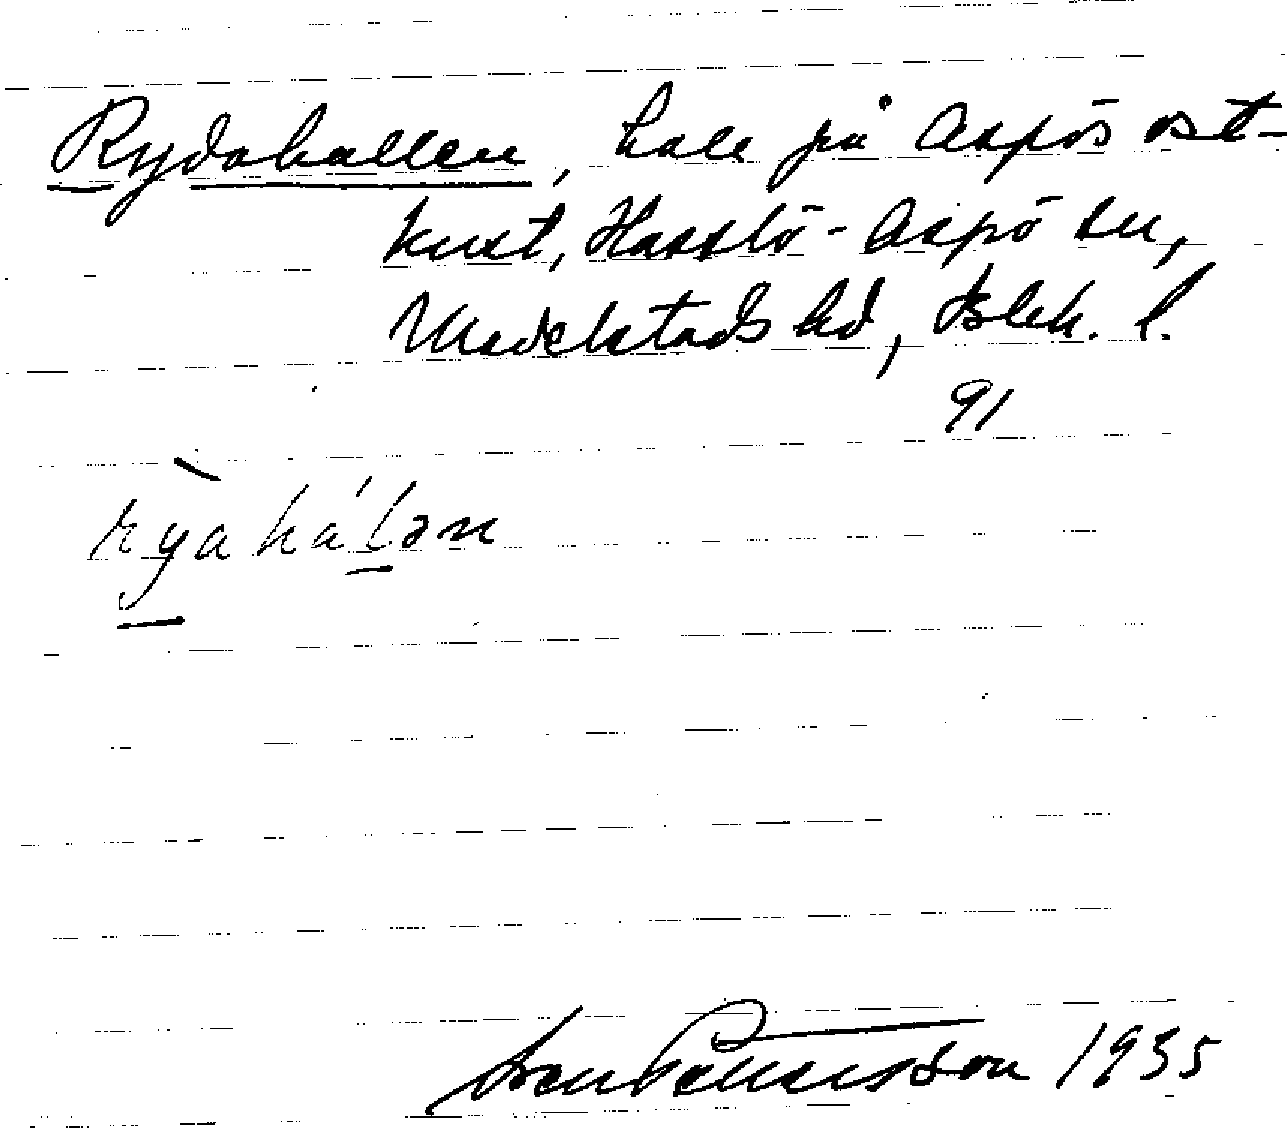 Rydahallen, hall på Aspös ost-
kust, Hasslö-Aspö sn,
Medelstads hd, Blek. l.
91
ryahalən
Sven Benson 1935